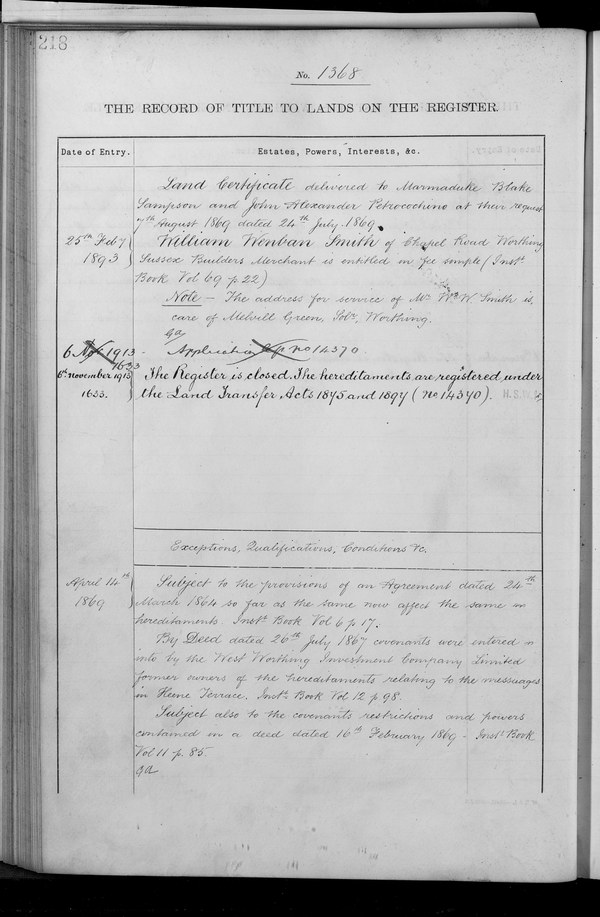 218
No. 1368
THE RECORD OF TITLE TO LANDS ON THE REGISTER.
Date of Entry.
Estates, Powers, Interests, &c.
Land Certificate delivered to Marmaduke Blake
Sampson and John Alexander Petrocochino at their request
7th August 1869 dated 24th July 1869.
25th Feby
1893
William Wenban Smith of Chapel Road Worthing
Sussex Builders Merchant is entitled in fee simple (Inst.
Book Vol 69 p 22)
Note – The address for service of Mr Wm W. Smith is,
care of Melvill Green, Solr, Worthing.
6 Nov 1913 - Application No 14370
1633
6th november 1913
1633.
The Register is closed. The hereditaments are registered under
the Land Transfer Acts 1875 and 1897 (No 14370).
Exceptions, Qualifications, Conditions &c.
April 14th
1869
Subject to the provisions of an Agreement dated 24th
March 1864 so far as the same now affect the same in
hereditaments. Inst. Book Vol 6 p 17.
By Deed dated 26th July 1867 covenants were entered in
into by the West Worthing Investment Company Limited
former owners of the hereditaments relating to the messuages
in Heene Terrace. Inst. Book Vol 12 p 98.
Subject also to the covenants restrictions and powers
contained in a deed dated 16th February 1869 - Inst. Book
Vol 11 p. 85.